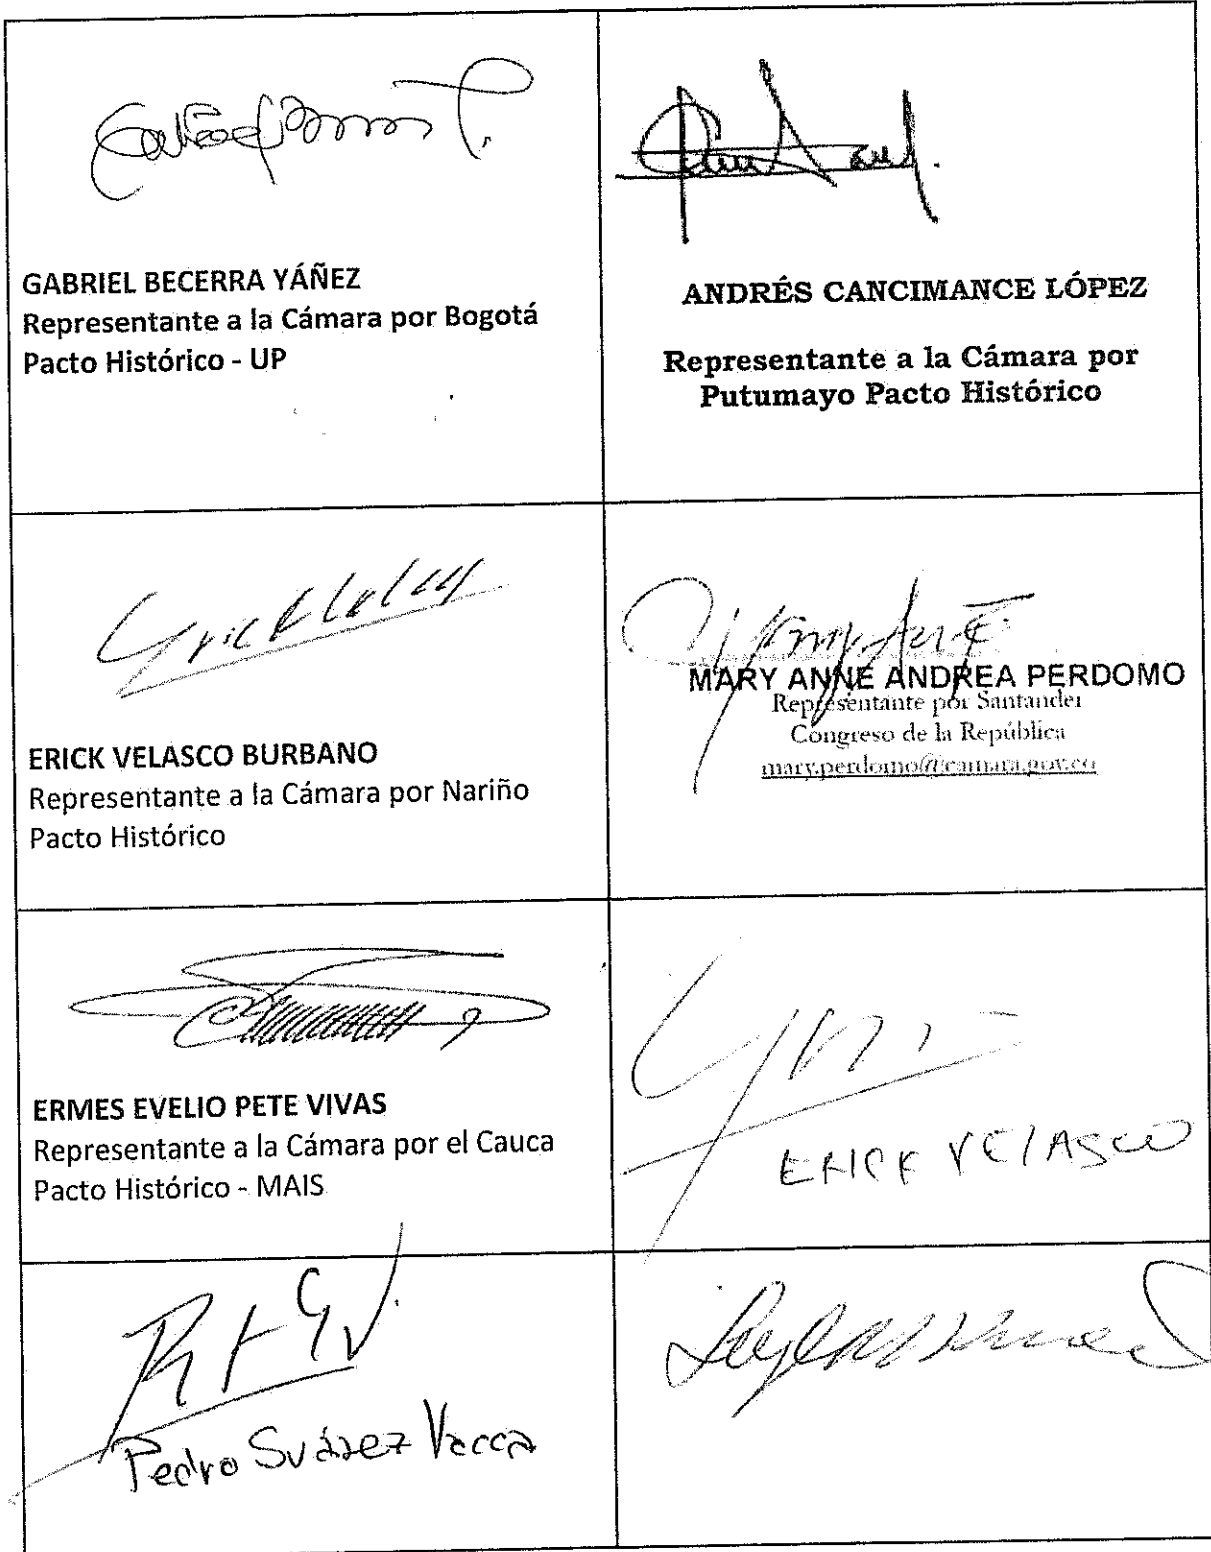 GABRIEL BECERRA YÁÑEZ
Representante a la Cámara por Bogotá
Pacto Histórico - UP
ANDRÉS CANCIMANCE LÓPEZ
Representante a la Cámara por
Putumayo Pacto Histórico
ERICK VELASCO BURBANO
Representante a la Cámara por Nariño
Pacto Histórico
MARY ANNE ANDREA PERDOMO
Representante por Santander
Congreso de la República
mary.perdomo@camara.gov.co
ERMES EVELIO PETE VIVAS
Representante a la Cámara por el Cauca
Pacto Histórico - MAIS
ERICK VELASCO
Pedro Suárez Vacca